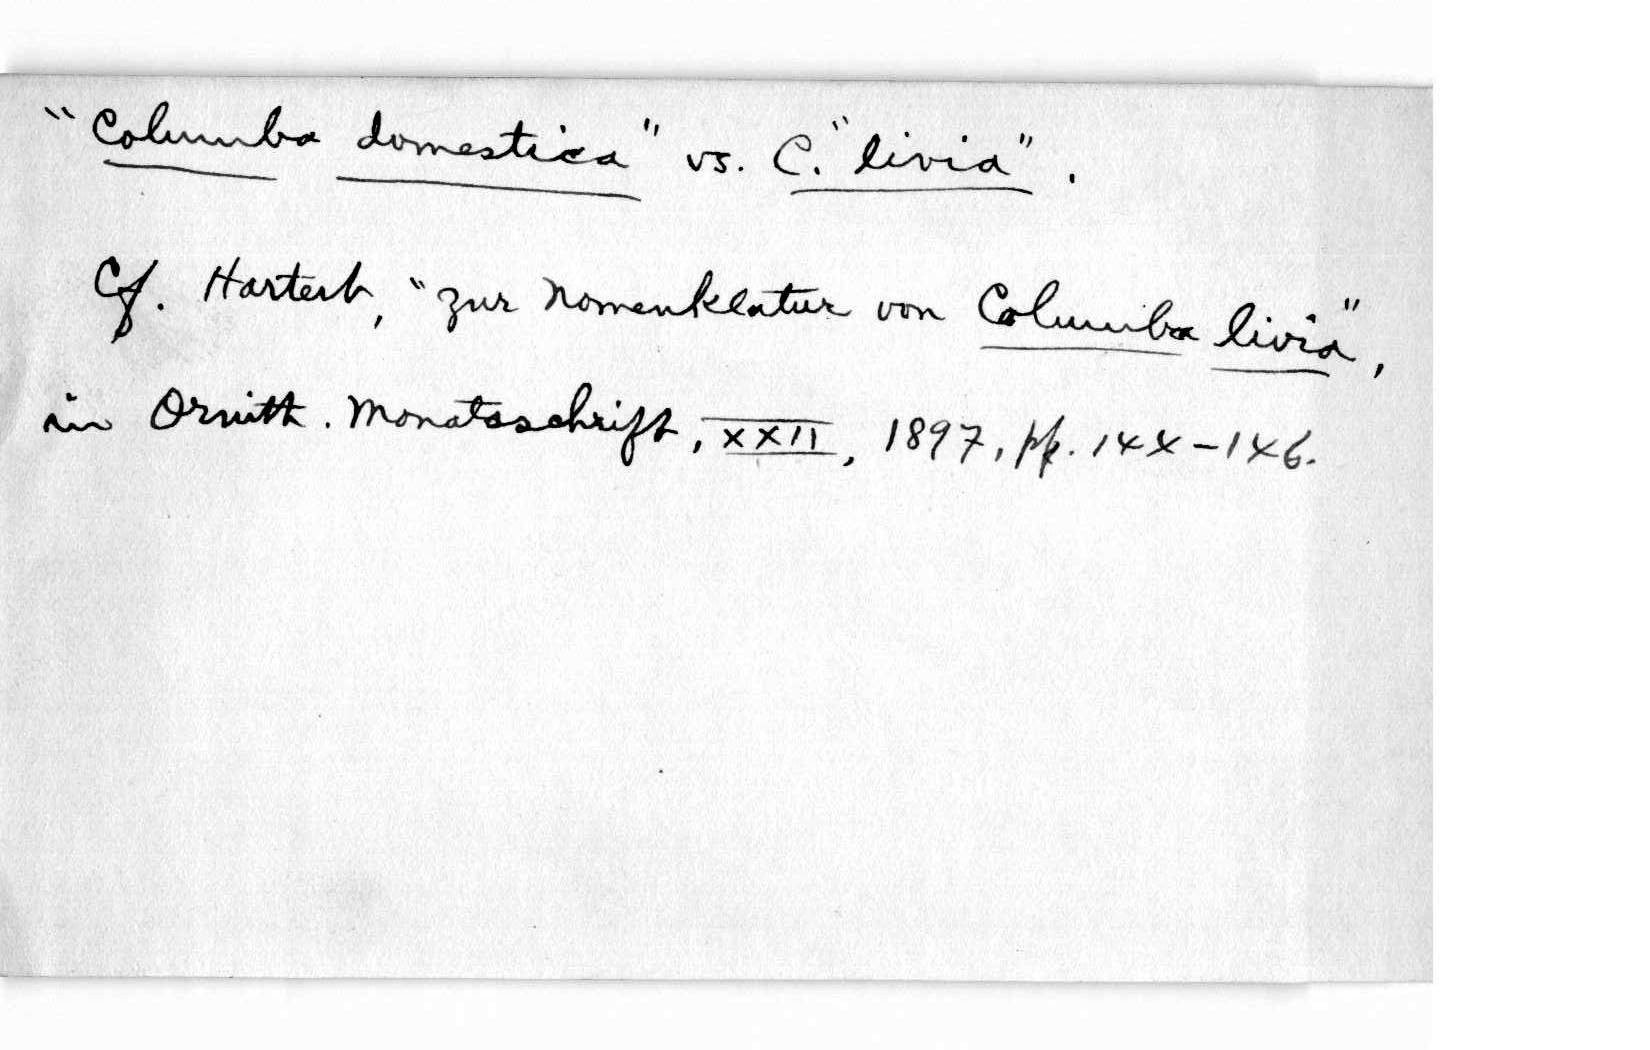 "Columba domestica" vs. C. "livia".
Cf. Hartert, "Zur Nomenklatur von Columba livia",
in Ornith. Monatsschrift, XXII, 1897, pp. 144-146.